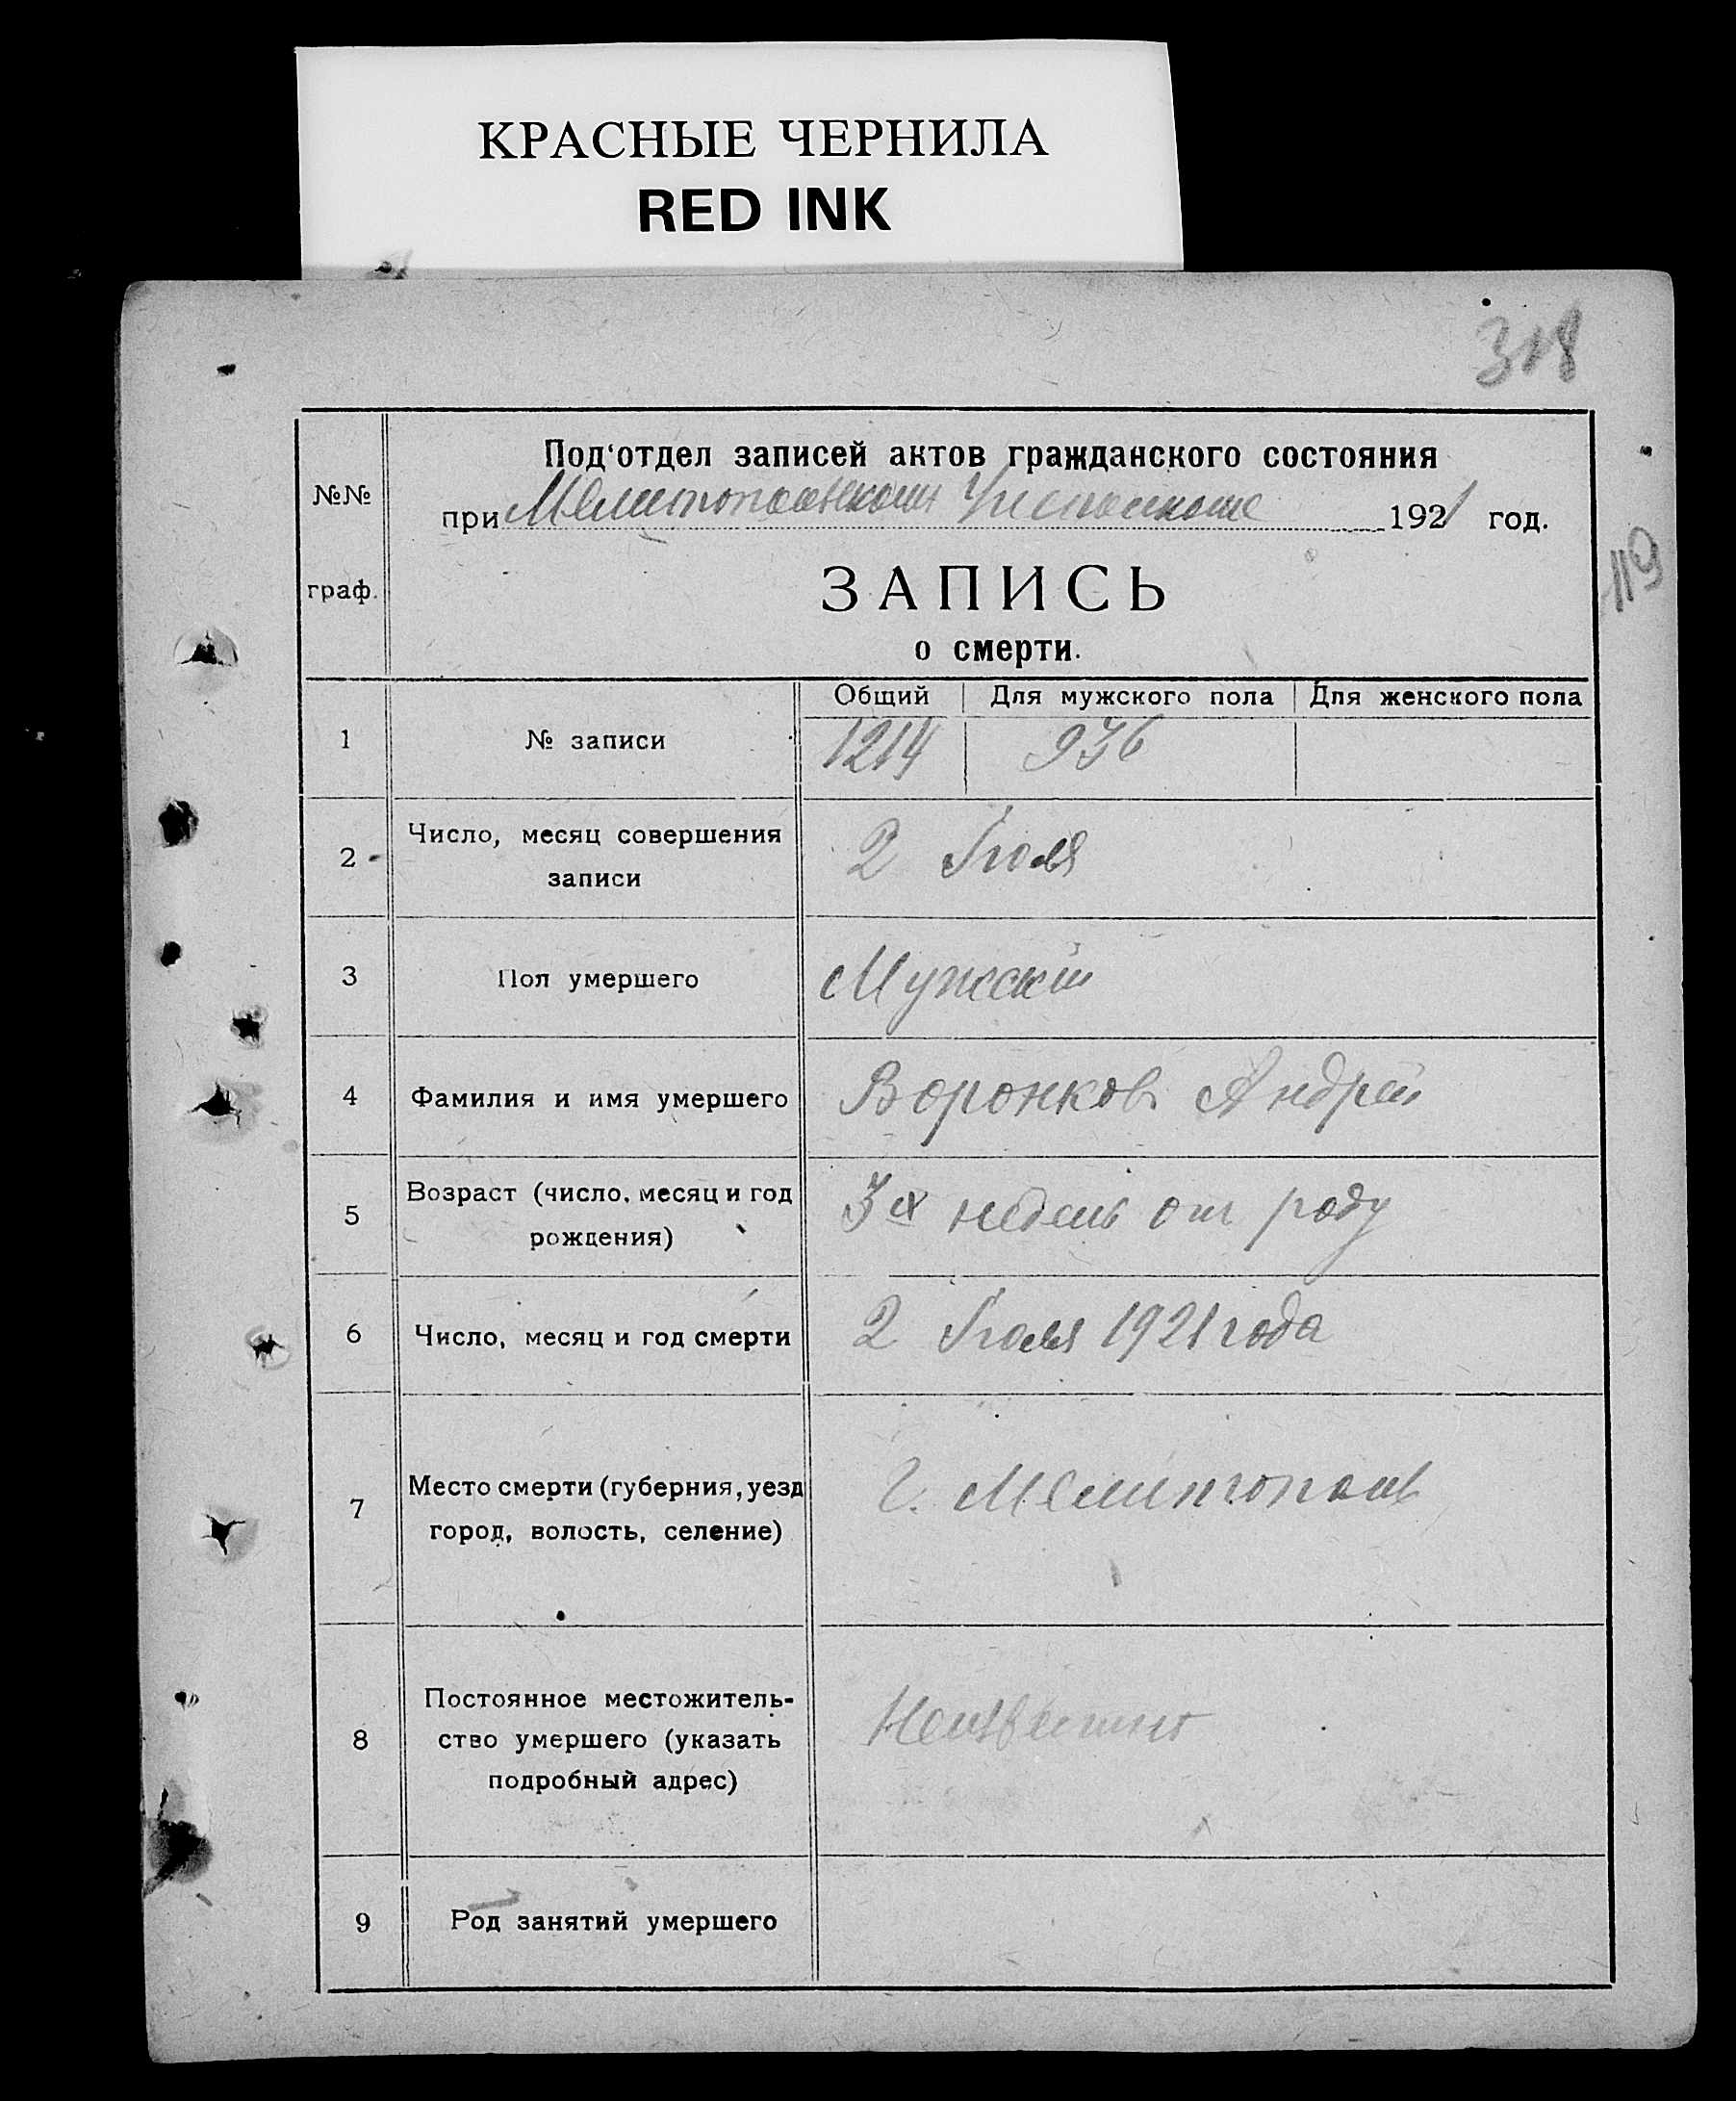 КРАСНЫЕ ЧЕРНИЛА
RED INK
318
№№
граф.
Под‘отдел записей актов гражданского состояния
при Мелитопольском 1921 год.
119
ЗАПИСЬ
о смерти.
Общий Для мужского пола Для женского пола
1 № записи 1214 936
2 Число, месяц совершения
записи
2 Июля
3 Пол умершего Мужский
4 Фамилия и имя умершего Воронков Андрей
5 Возраст (число, месяц и год
рождения)
3х недель от роду
6 Число, месяц и год смерти 2 Июля 1921 года
7 Место смерти (губерния, уезд
город, волость, селение)
г. Мелитополь
8 Постоянное местожитель-
ство умершего (указать
подробный адрес)
Неизвестно
9 Род занятий умершего